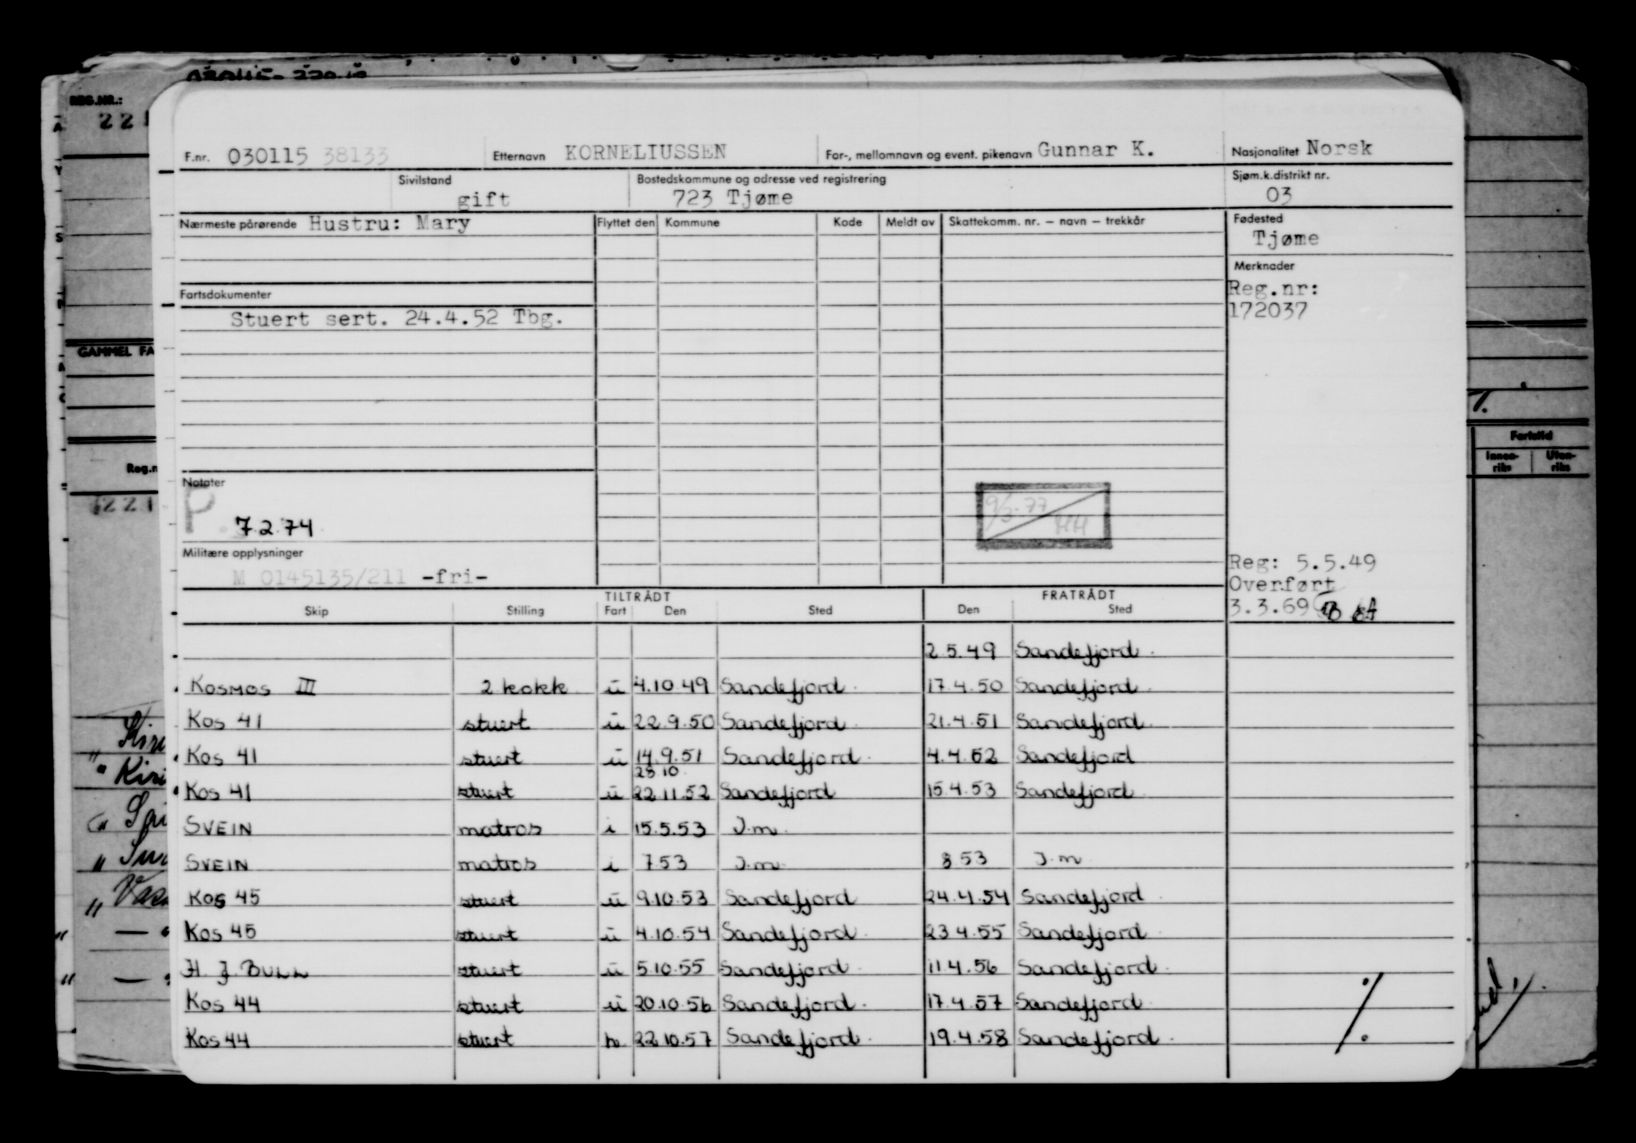 REG.NR.:
221
F.nr. 030115 38133 Etternavn KORNELIUSSEN For-, mellomnavn og event. pikenavn Gunnar K. Nasjonalitet Norsk
Sivilstand gift Bostedskommune og adresse ved registrering 723 Tjøme Sjøm.k.distrikt nr. 03
Nærmeste pårørende Hustru: Mary Flyttet den Kommune Kode Meldt av Skattekomm. nr. – navn – trekkår Fødested
Tjøme
Merknader
Fartsdokumenter Reg.nr:
Stuert sert. 24.4.52 Tbg. 172037
GAMMEL FA
Fartstid
Innen-riks Uten-riks
Notater
P 7.2.74
Militære opplysninger
M 0145135/211 -fri-
Reg: 5.5.49
Overført
3.3.69
TILTRÅDT FRATRÅDT
Skip Stilling Fart Den Sted Den Sted
2.5.49 Sandefjord
Kosmos III 2 kokk u 4.10.49 Sandefjord 17.4.50 Sandefjord
Kos 41 stuert u 22.9.50 Sandefjord 21.4.51 Sandefjord
Kos 41 stuert u 14.9.51 Sandefjord 4.4.52 Sandefjord
25 10
Kos 41 stuert u 22.11.52 Sandefjord 15.4.53 Sandefjord
SVEIN matros i 15.5.53 J.m.
SVEIN matros i 7.53 J.m. 8.53 J.m.
Kos 45 stuert u 9.10.53 Sandefjord 24.4.54 Sandefjord
Kos 45 stuert u 4.10.54 Sandefjord 23.4.55 Sandefjord
H J BULL stuert u 5.10.55 Sandefjord 11.4.56 Sandefjord
Kos 44 stuert u 20.10.56 Sandefjord 17.4.57 Sandefjord
Kos 44 stuert h 22.10.57 Sandefjord 19.4.58 Sandefjord